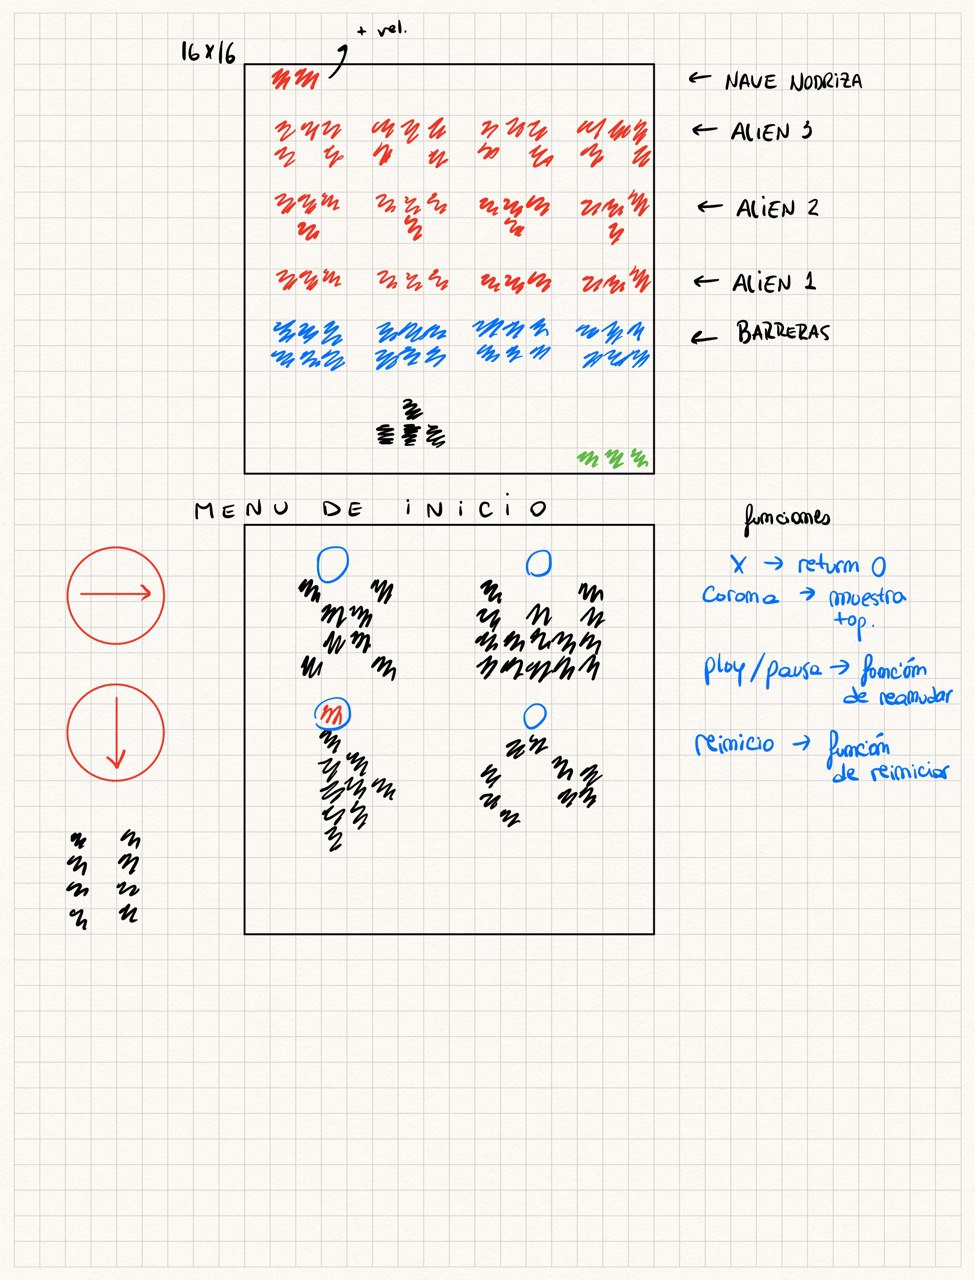 + vel.
16x16
← NAVE NODRIZA
← ALIEN 3
← ALIEN 2
← ALIEN 1
← BARRERAS
MENU DE INICIO
funciones
X → return 0
Corona → muestra
top.
play/pausa → función
de reanudar
reinicio → función
de reiniciar